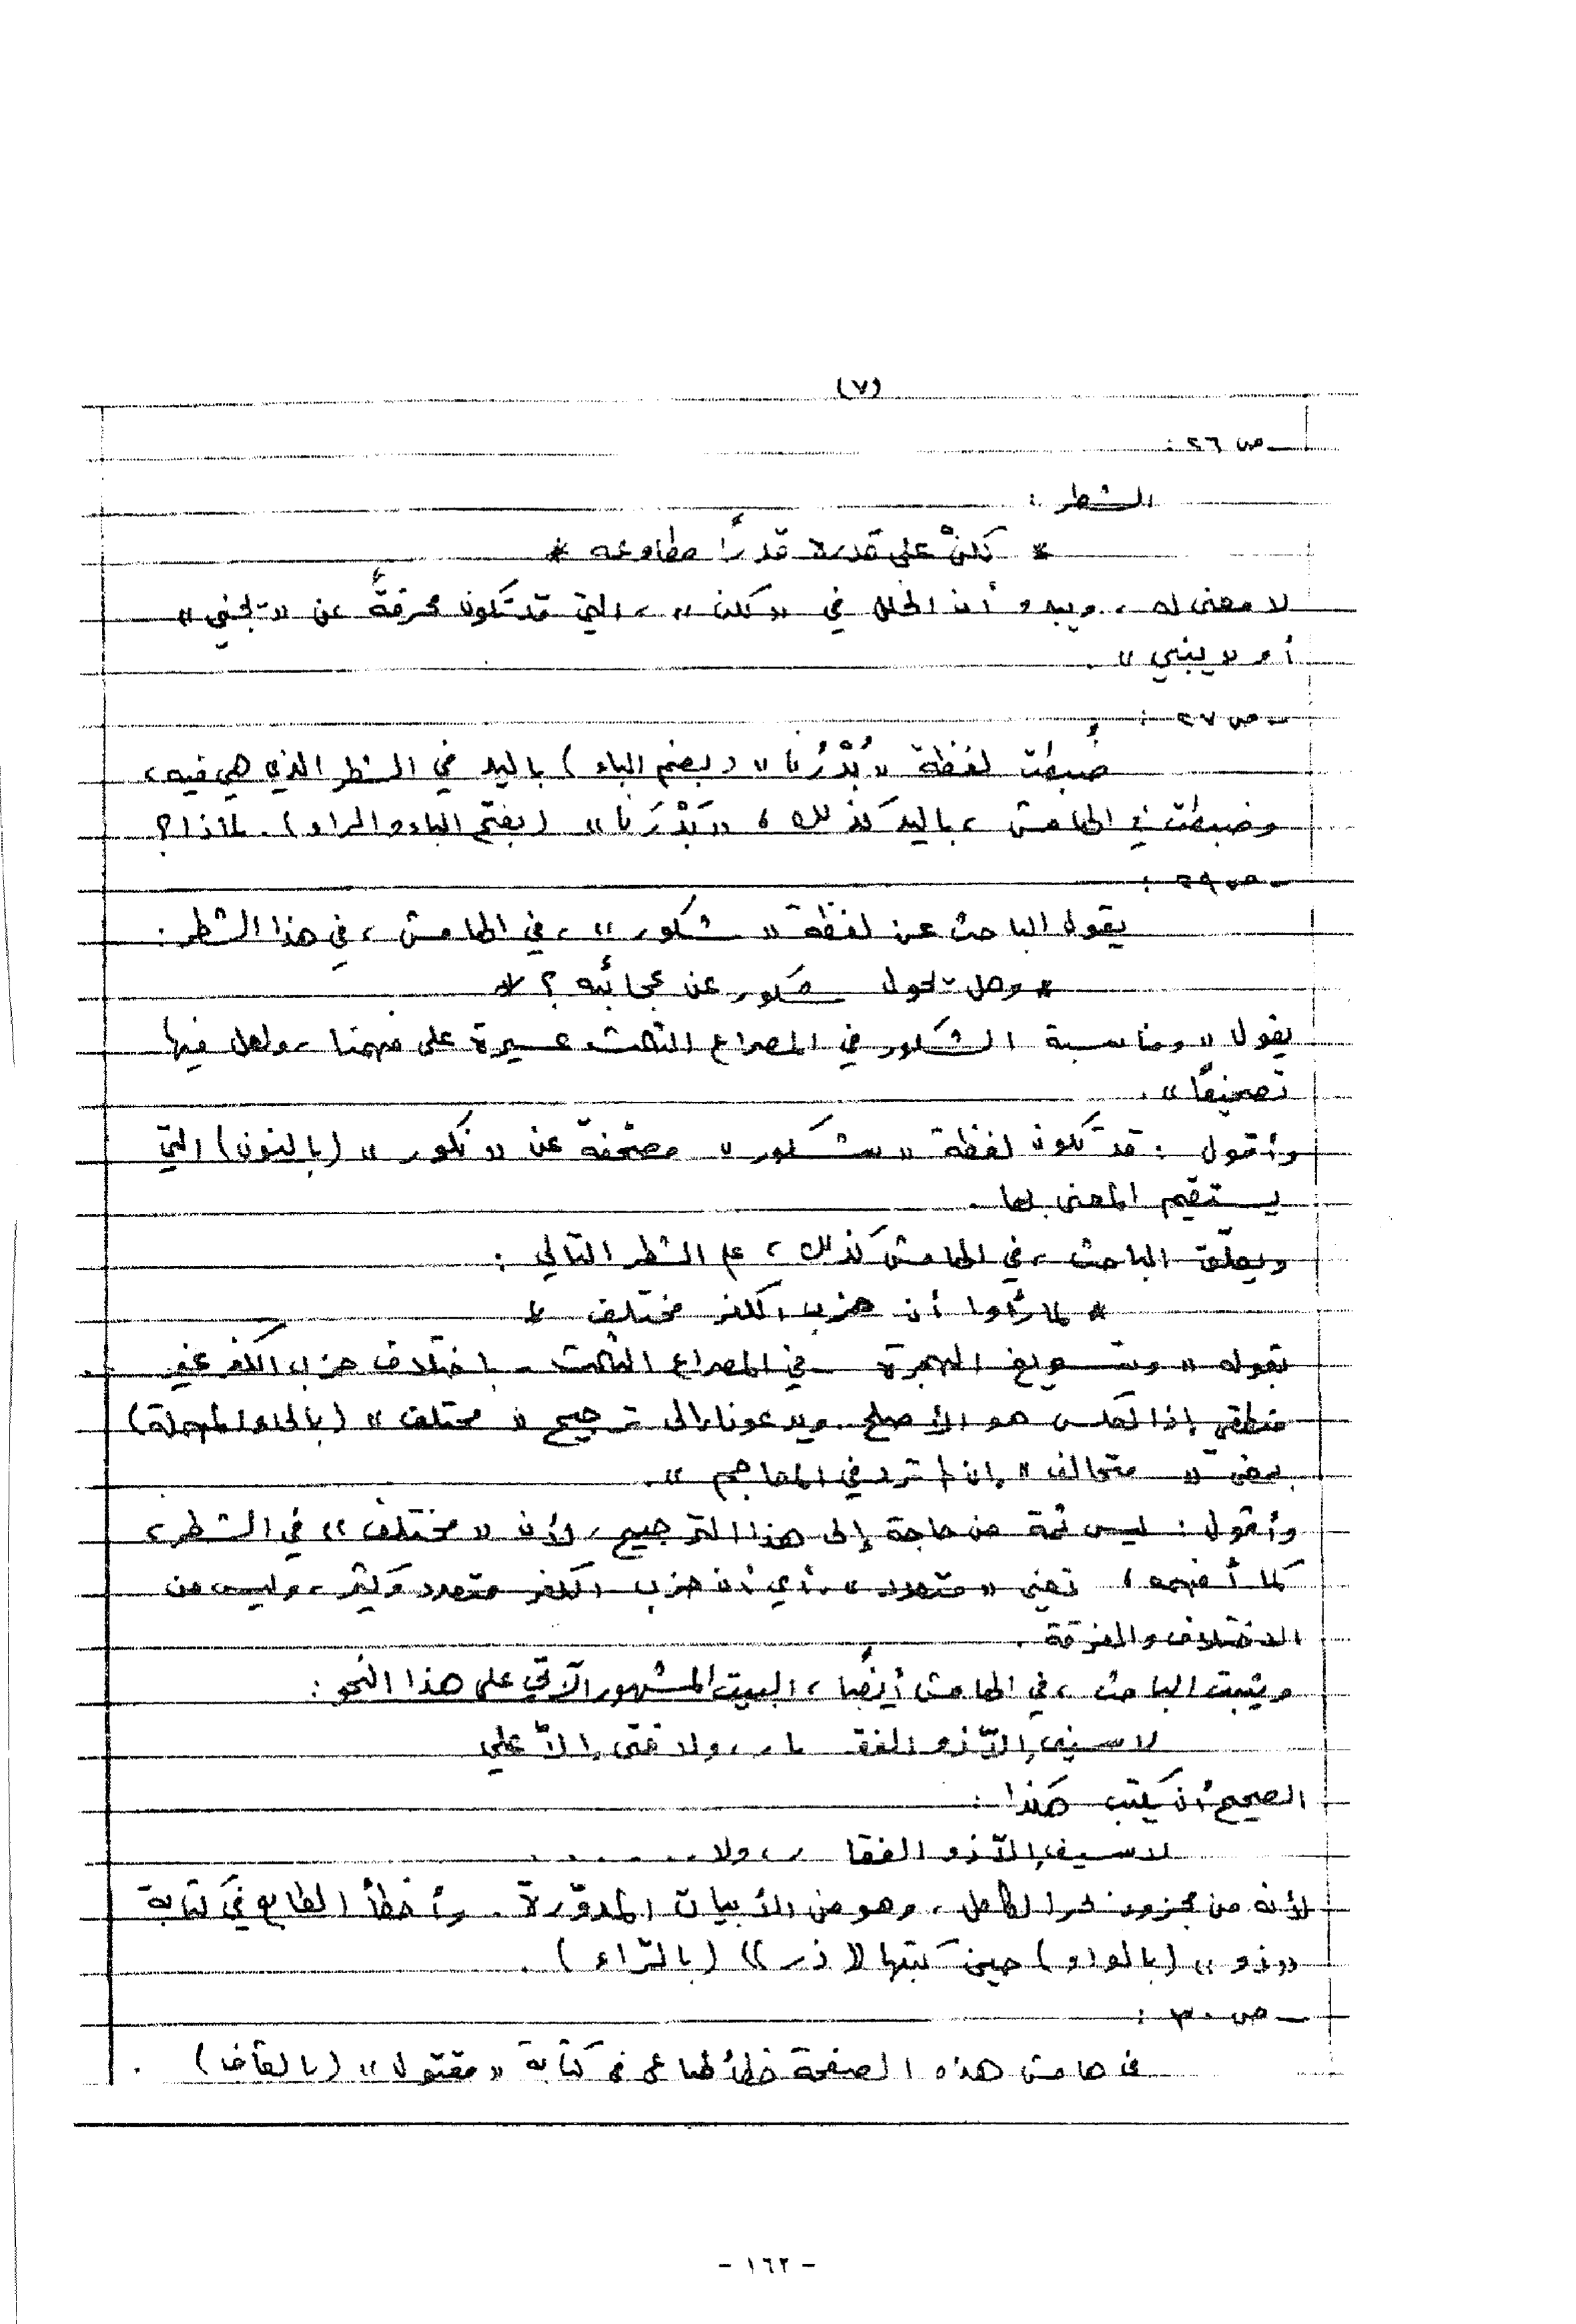 (٧)
ـ ص ٢٦ :
الشطر :
* كلن على قدره قدرًا مطاوعه *
لا معنى له ، ويبدو أن الخلل في «كلن» ، التي قد تكون محرفةً عن «تجني»
أو «يبني» .
ـ ص ٢٧ :
ضُبطت لفظة «بُدْرُنا» (بضم الباء) باليد في الشطر الذي هي فيه ،
وضبطت في الهامش ، باليد كذلك ، «بَدْرَنا» (بفتح الباء والراء) . لماذا ؟
ـ ص ٢٩ :
يقول الباحث عن لفظة «شكور» ، في الهامش ، في هذا الشطر :
* وهل تحول شكور عن عجائبه ؟ *
يقول «ومناسبة الشكور في المصراع الثالث عسيرة على فهمنا ، ولعل فيها
تصحيفًا» .
وأقول : قد تكون لفظة «شكور» مصحّفة عن «نكور» (بالنون) التي
يستقيم المعنى بها .
ويعلّق الباحث ، في الهامش كذلك ، على الشطر التالي :
* لما رأوا أن حزب الكفر مختلف *
بقوله «وتسويغ الهجرة في المصراع الثالث ـ باختلاف حزب الكفر غير
منطقي إذ العكس هو الأصلح . ويدعونا إلى ترجيح «محتلف» (بالحاء المهملة)
بمعنى «متحالف» إن لم ترد في المعاجم» .
وأقول : ليس ثمة من حاجة إلى هذا الترجيح ، لأن «مختلف» في الشطر ،
كما أفهمه ، تعني «متعدد» ، أي أن حزب الكفر متعدد وكثير ، وليس من
الاختلاف والفرقة .
ويثبت الباحث ، في الهامش أيضًا ، البيت المشهور الآتي على هذا النحو :
لا سيف إلاّ ذو الفقـ ـار ، ولا فتى إلاّ علي
الصحيح أن يكتب هكذا :
لا سيف إلاّ ذو الفقا ر ، ولا . . . . . .
لأنه من مجزوء بحر الكامل ، وهو من الأبيات المدوّرة . وأخطأ الطابع في كتابة
«ذو» (بالواو) حين كتبها «ذر» (بالرّاء) .
ـ ص ٣٠ :
في هامش هذه الصفحة خطأ طباعي في كتابة «مقتول» (بالقاف) .
- ١٦٢ -